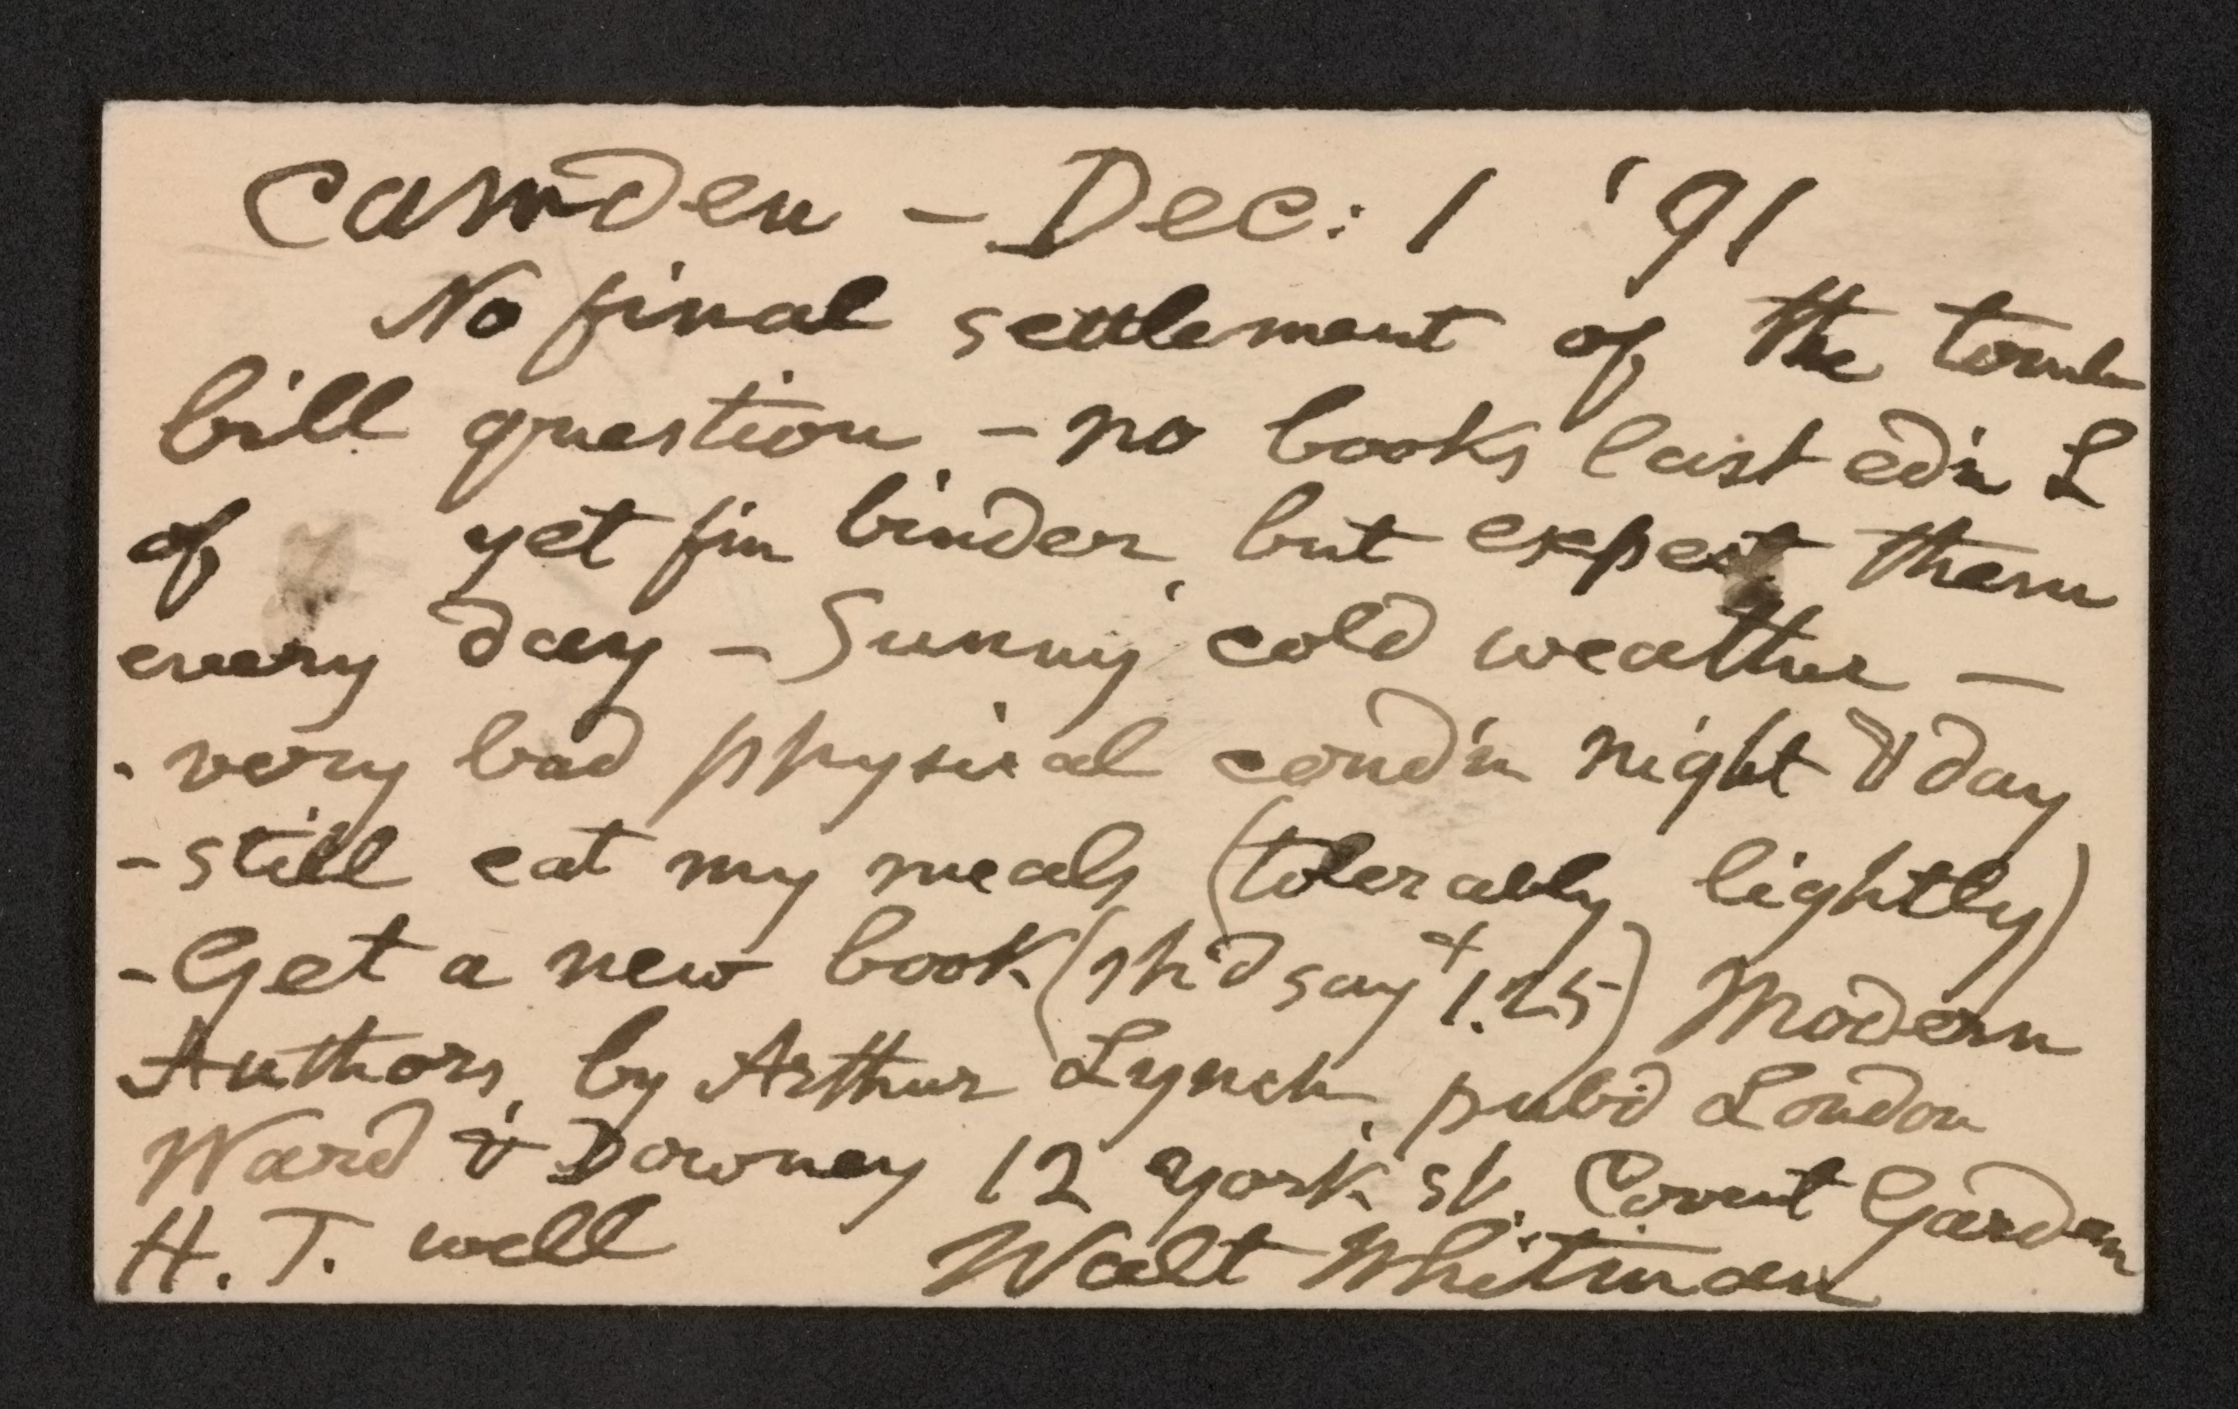 Camden - Dec: 1 '91
No final settlement of the tomb
bill question - no books last ed'n L
of yet f'm binder, but expect them
every day - Sunny cold weather -
- very bad physical cond'n night & day
- still eat my meals (tolerably lightly)
- Get a new book (sh'd say + 1.25) Modern
Authors, by Arthur Lynch, pub'd London
Ward & Downey 12 York st. Covent Garden
H. T. well Walt Whitman